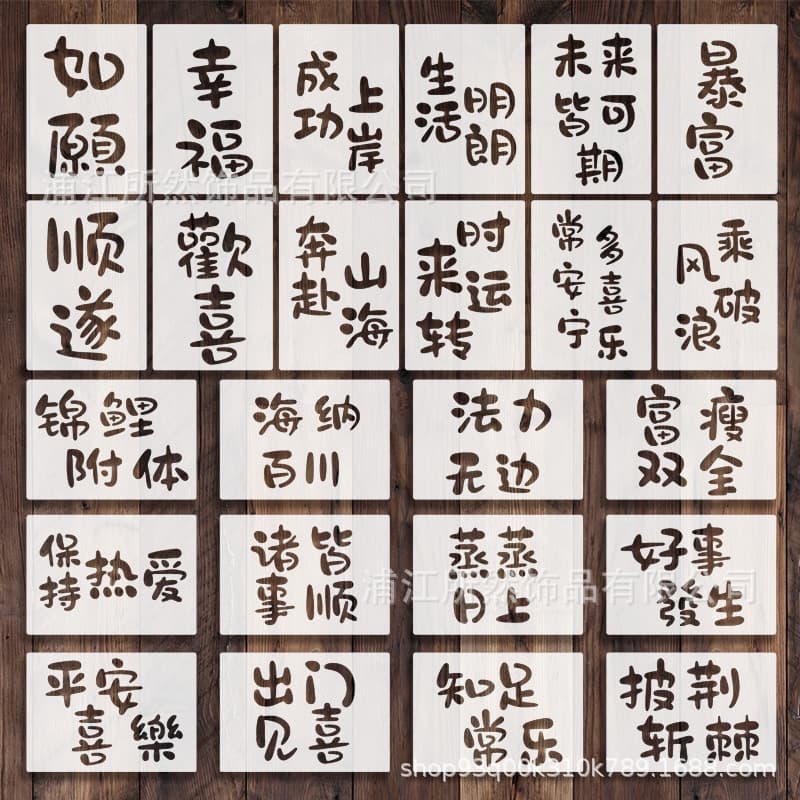 如願
幸福
成功
上岸
生活
明朗
未来
皆可期
暴富
浦江所然饰品有限公司
顺遂
歡喜
奔赴
山海
时运
来转
常安宁
多喜乐
乘
风破
浪
锦鲤
附体
海纳
百川
法力
无边
富瘦
双全
保持热爱
诸事皆顺
蒸蒸
日上
好事
發生
浦江所然饰品有限公司
平安
喜樂
出门
见喜
知足
常乐
披荆
斩棘
shop93q00k310k789.1688.com